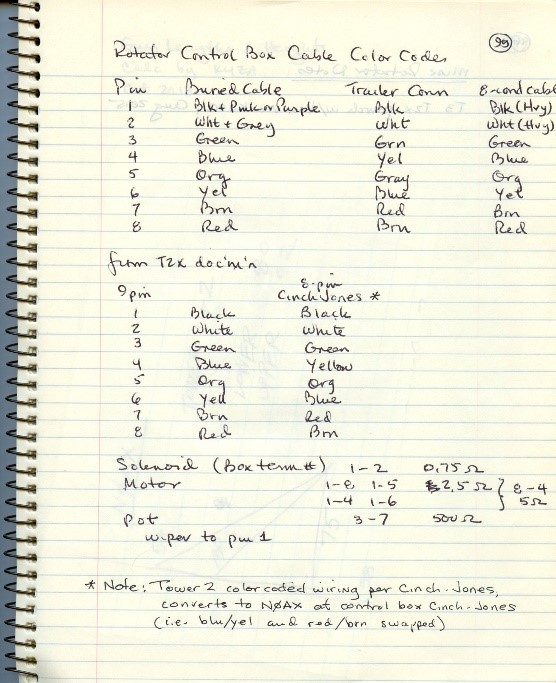 99
Rotator Control Box Cable Color Codes
Pin Buried Cable Trailer Conn 8-cond cabl
1 Blk + Pnk or Purple Blk Blk (Hvy)
2 Wht + Grey Wht Wht (Hvy)
3 Green Grn Green
4 Blue Yel Blue
5 Org Gray Org
6 Yel Blue Yel
7 Brn Red Brn
8 Red Brn Red
from T2X doc'm'n
9pin 8-pin Cinch Jones *
1 Black Black
2 White White
3 Green Green
4 Blue Yellow
5 Org Org
6 Yell Blue
7 Brn Red
8 Red Brn
Solenoid (Box term #) 1-2 0.75 Ω
Motor 1-8 1-5 2.5 Ω } 8-4
1-4 1-6 } 5Ω
Pot 3-7 500 Ω
wiper to pin 1
* Note: Tower 2 color coded wiring per Cinch-Jones,
converts to NØAX at control box Cinch-Jones
(i.e. blu/yel and red/brn swapped)